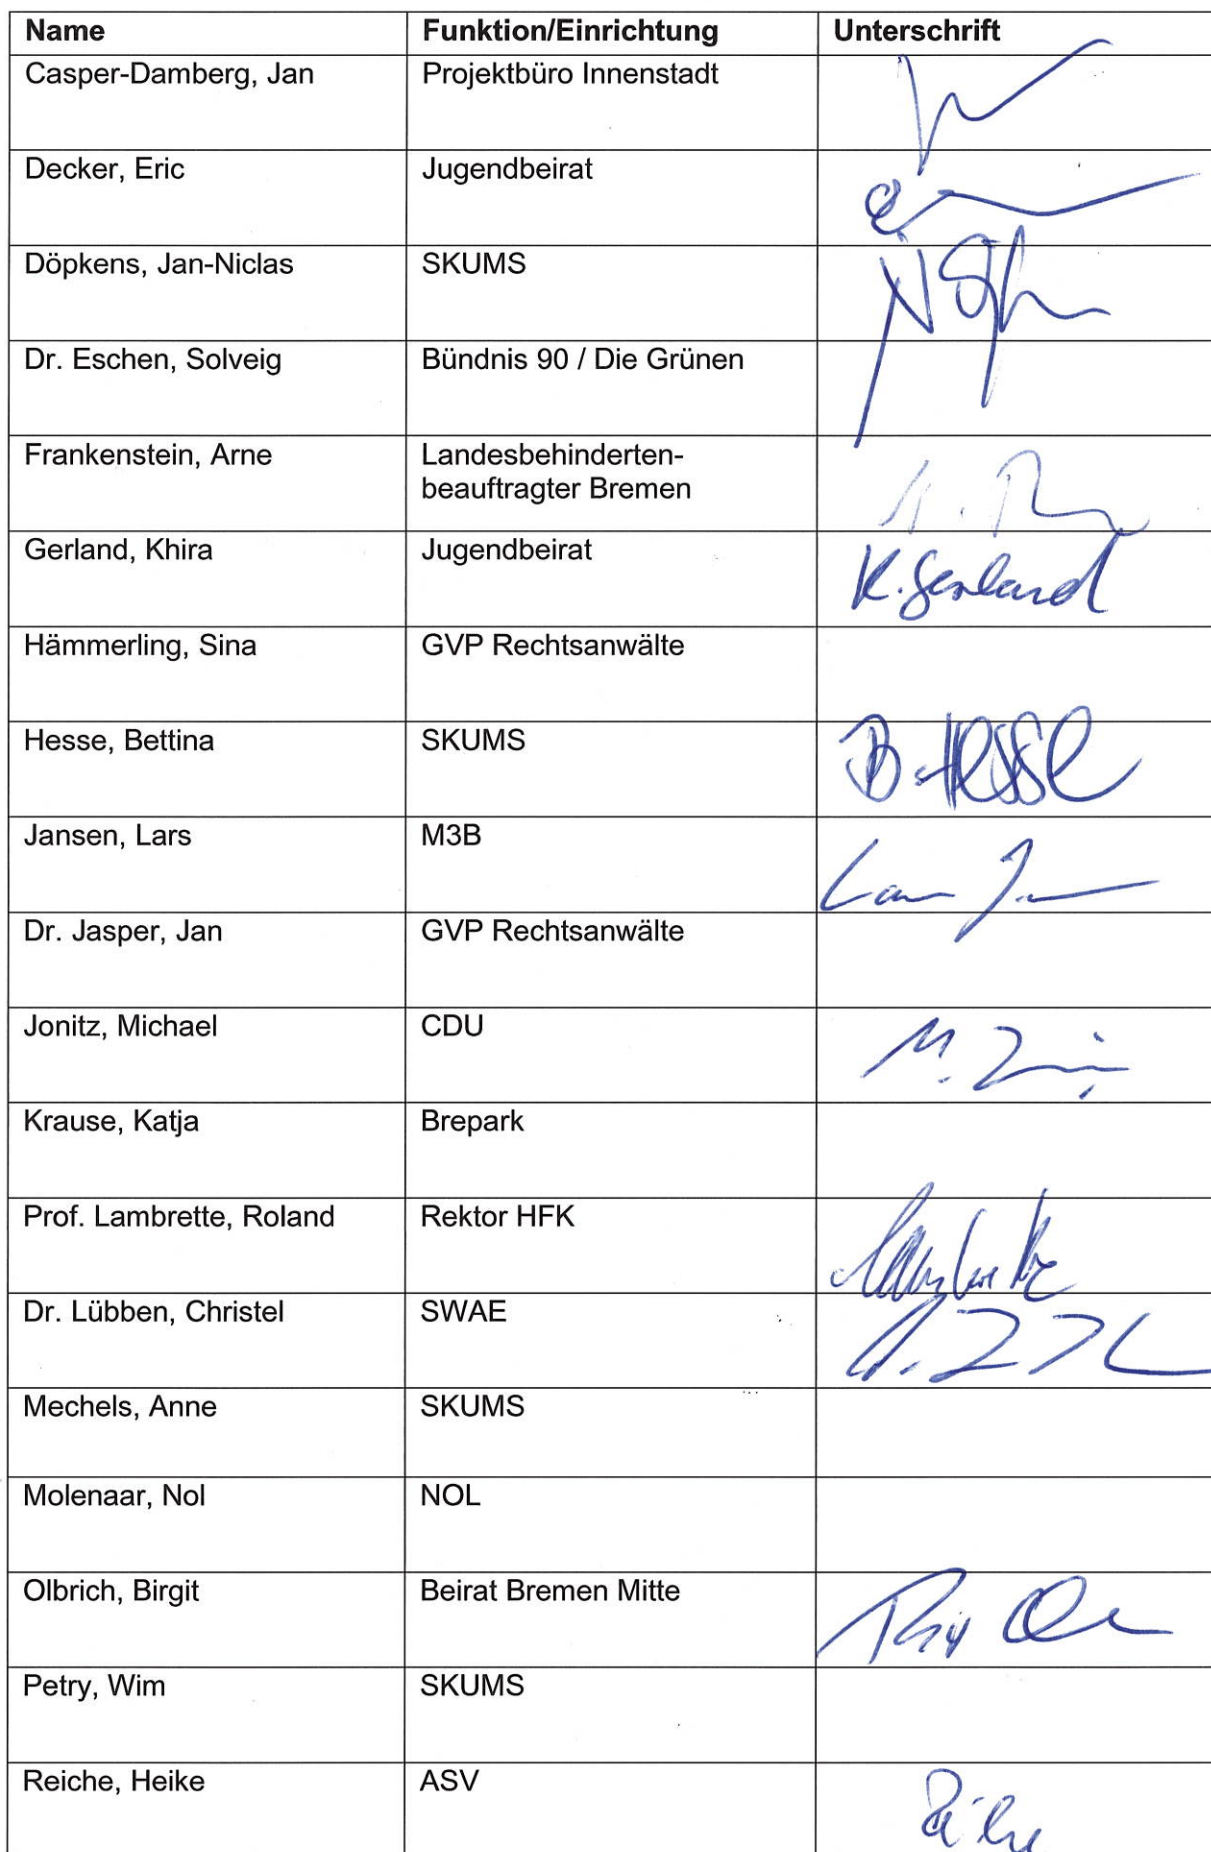 Name Funktion/Einrichtung Unterschrift
Casper-Damberg, Jan Projektbüro Innenstadt
Decker, Eric Jugendbeirat
Döpkens, Jan-Niclas SKUMS
Dr. Eschen, Solveig Bündnis 90 / Die Grünen
Frankenstein, Arne Landesbehinderten-
beauftragter Bremen
Gerland, Khira Jugendbeirat K. Gerland
Hämmerling, Sina GVP Rechtsanwälte
Hesse, Bettina SKUMS B. Hesse
Jansen, Lars M3B
Dr. Jasper, Jan GVP Rechtsanwälte
Jonitz, Michael CDU
Krause, Katja Brepark
Prof. Lambrette, Roland Rektor HFK
Dr. Lübben, Christel SWAE
Mechels, Anne SKUMS
Molenaar, Nol NOL
Olbrich, Birgit Beirat Bremen Mitte
Petry, Wim SKUMS
Reiche, Heike ASV